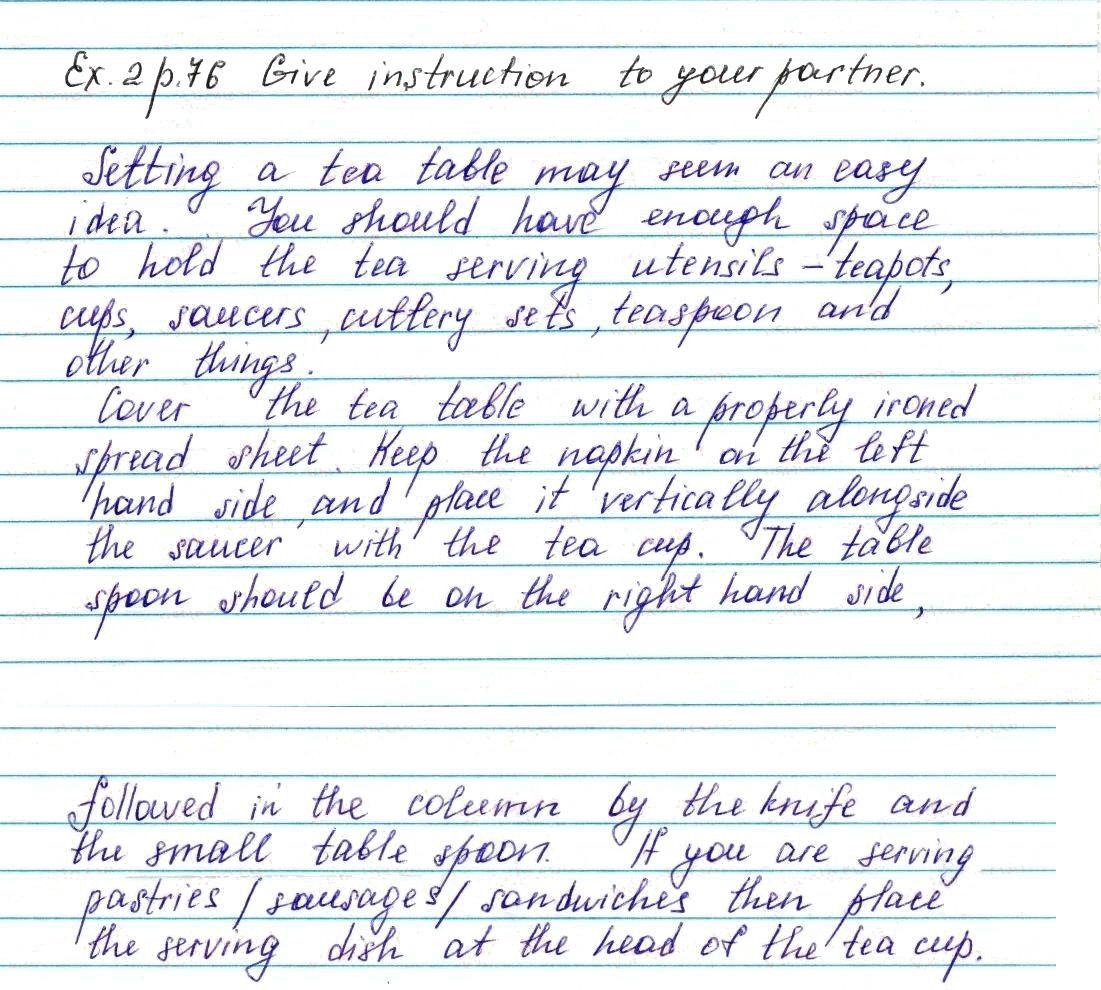 Ex. 2 p.76 Give instruction to your partner.
Setting a tea table may seem an easy
idea. You should have enough space
to hold the tea serving utensils – teapots,
cups, saucers, cuttery sets, teaspoon and
other things.
Cover the tea table with a properly ironed
spread sheet. Keep the napkin on the left
hand side, and place it vertically alongside
the saucer with the tea cup. The table
spoon should be on the right hand side,
followed in the column by the knife and
the small table spoon. If you are serving
pastries / sausages / sandwiches then place
the serving dish at the head of the tea cup.